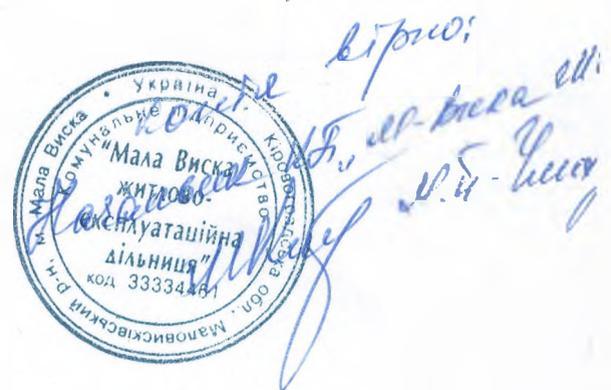 копія вірно:
Начальник К.П. "М-Виска
Україна
Кіровоградська обл., Маловисківський р-н, м. Мала Виска
Комунальне підприємство
"Мала Виска
житлово-
експлуатаційна
дільниця"
код 33334461